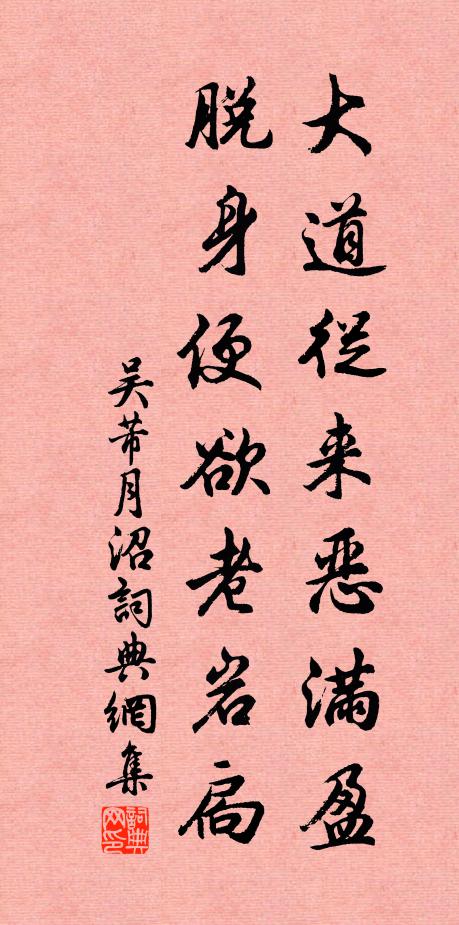 大道從来恶滿盈
脱身便欲老岩扃
吴芾月沼詞典網集
詞典网印